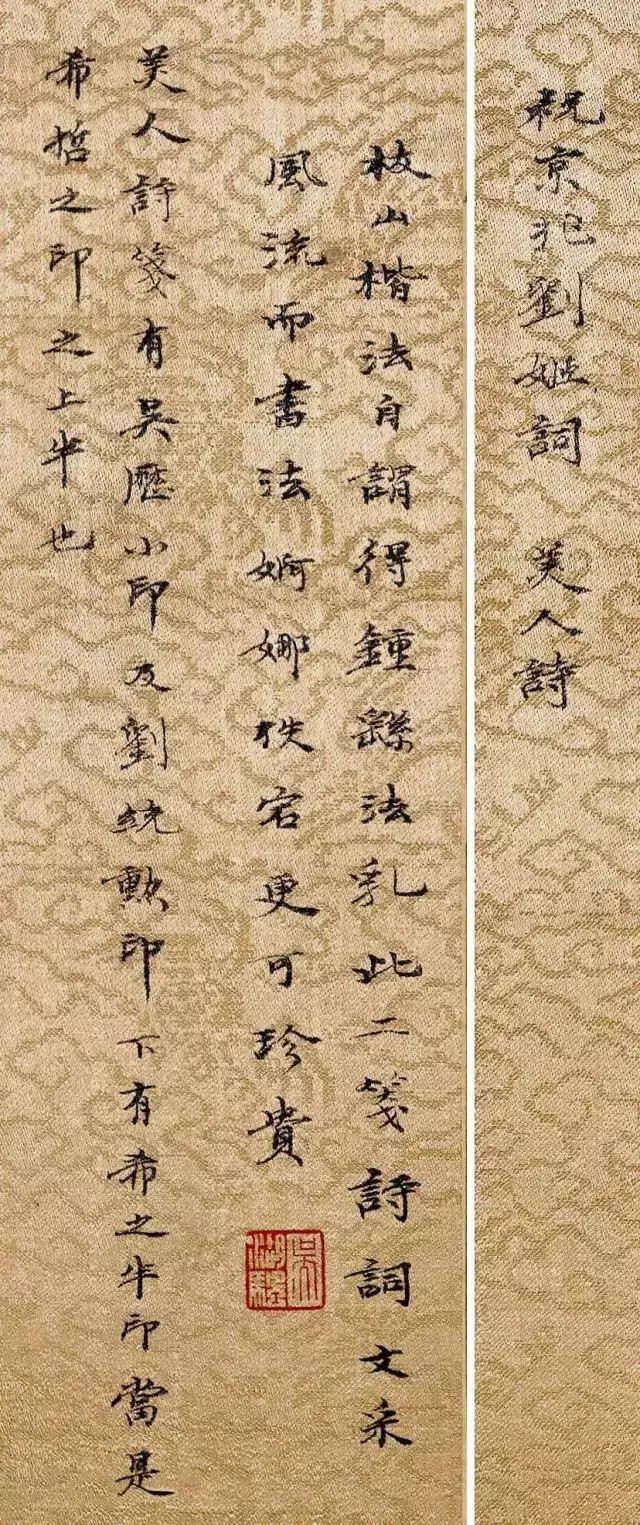 祝京兆劉姬詞 美人詩
枝山楷法自謂得鍾繇法乳此二箋詩詞文采
風流而書法婀娜狹宕更可珍貴
美人詩箋有吳歷小印及劉統勳印 下有希之半印當是
希哲之印之上半也